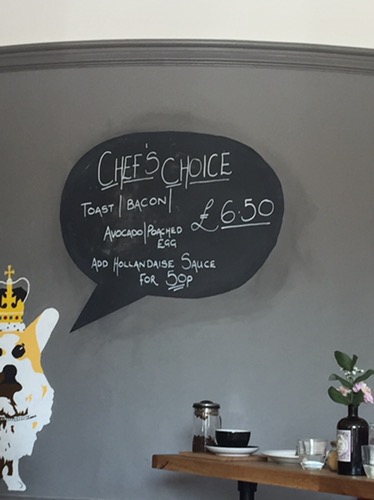 CHEF'S CHOICE
TOAST | BACON |
AVOCADO | POACHED
EGG
£6.50
ADD HOLLANDAISE SAUCE
FOR 50P